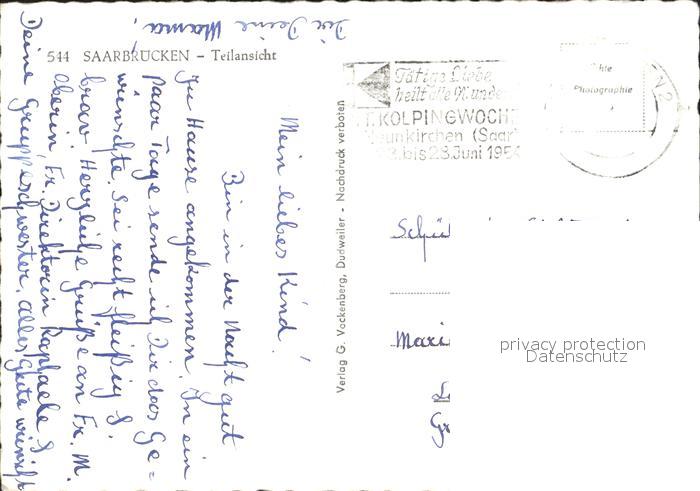 544 SAARBRÜCKEN – Teilansicht
Mein liebes Kind!
Bin in der Nacht gut
zu Hause angekommen. In ein
paar Tage sende ich Dir das Ge=
wünschte. Sei recht fleißig &
brav. Herzliche Grüße an Fr. M.
Oberin, Fr. Direktorin Raphaele &
Deine Gruppeschwester, alles Gute wünscht
Dir Deine Mama!
Verlag G. Vockenberg, Dudweiler - Nachdruck verboten
Tätige Liebe
heilt alle Wunde
KOLPINGWOCH
unkirchen (Saar)
bis 28. Juni 195
hte
Photographie
Schü
Mari
privacy protection
Datenschutz